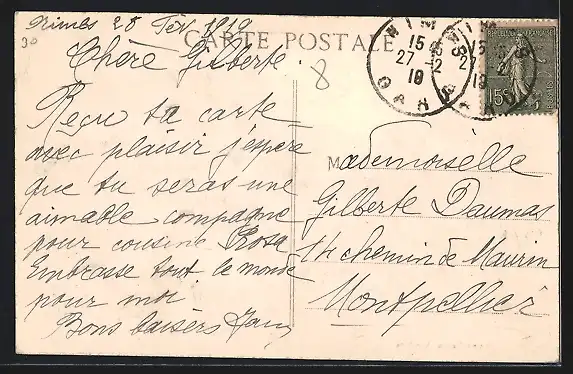 Nimes 28 Fev 1919
CARTE POSTALE
30
8
Chère Gilberte
Reçu ta carte
avec plaisir j'espère
que tu seras une
aimable compagne
pour cousine Rosa
Embrasse tout le monde
pour moi
Bons baisers
NIMES
15
27-2
19
GARD
15c
Mademoiselle
Gilberte Daumas
14 chemin de Maurin
Montpellier